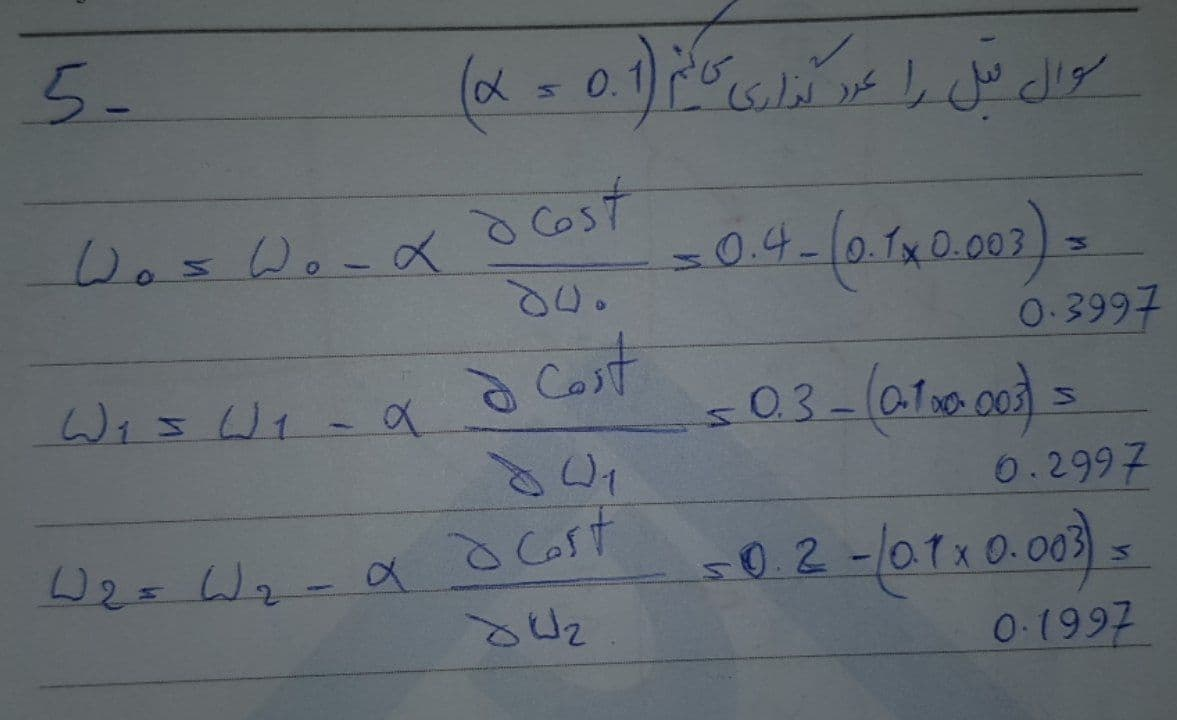 5- سوال قبل را عدد گذاری می‌کنیم (α = 0.1)
W₀ = W₀ - α ∂Cost/∂W₀ = 0.4 - (0.1 x 0.003) =
0.3997
W₁ = W₁ - α ∂Cost/∂W₁ = 0.3 - (0.1 x 0.003) =
0.2997
W₂ = W₂ - α ∂Cost/∂W₂ = 0.2 - (0.1 x 0.003) =
0.1997